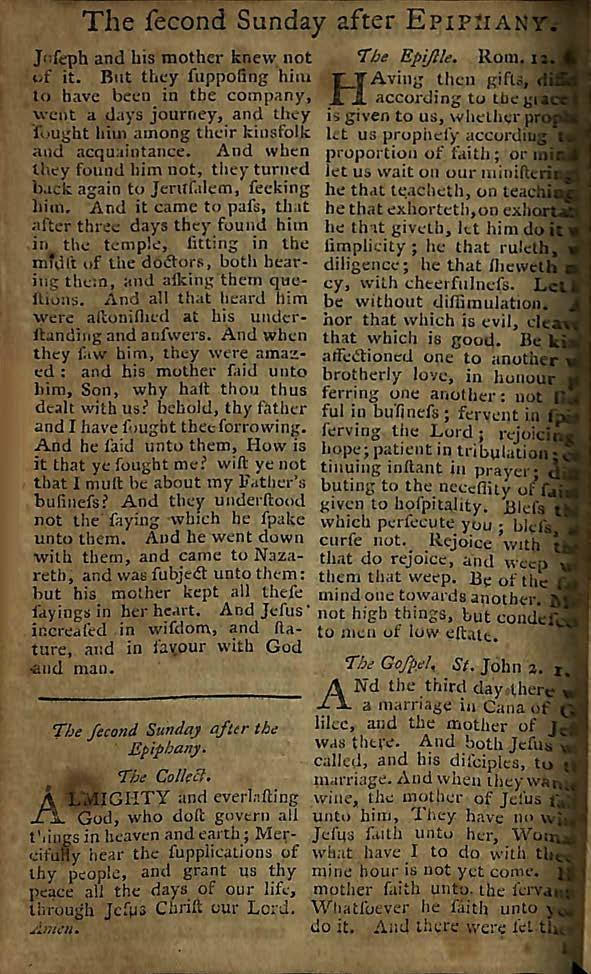 The ſecond Sunday after EPIPHANY.
Joſeph and his mother knew not
of it. But they ſuppoſing him
to have been in the company,
went a days journey, and they
ſought him among their kinsfolk
and acquaintance. And when
they found him not, they turned
back again to Jeruſalem, ſeeking
him. And it came to paſs, that
after three days they found him
in the temple, ſitting in the
midſt of the doctors, both hear-
ing them, and aſking them que-
ſtions. And all that heard him
were aſtoniſhed at his under-
ſtanding and anſwers. And when
they ſaw him, they were amaz-
ed: and his mother ſaid unto
him, Son, why haſt thou thus
dealt with us? behold, thy father
and I have ſought thee ſorrowing.
And he ſaid unto them, How is
it that ye ſought me? wiſt ye not
that I muſt be about my Father's
buſineſs? And they underſtood
not the ſaying which he ſpake
unto them. And he went down
with them, and came to Naza-
reth, and was ſubject unto them:
but his mother kept all theſe
ſayings in her heart. And Jeſus
increaſed in wiſdom, and ſta-
ture, and in favour with God
and man.
The ſecond Sunday after the
Epiphany.
The Collect.
ALMIGHTY and everlaſting
God, who doſt govern all
things in heaven and earth; Mer-
cifully hear the ſupplications of
thy people, and grant us thy
peace all the days of our life,
through Jeſus Chriſt our Lord.
Amen.
The Epiſtle. Rom. 12.
HAving then gifts,
according to the grace
is given to us, whether
let us propheſy according
proportion of faith; or
let us wait on our miniſtering
he that teacheth, on teaching
he that exhorteth, on
he that giveth, let him do it
ſimplicity; he that ruleth,
diligence; he that ſheweth
cy, with cheerfulneſs. Let
be without diſſimulation.
hor that which is evil,
that which is good. Be
affectioned one to another
brotherly love, in honour
ferring one another: not
ful in buſineſs; fervent in
ſerving the Lord; rejoicing
hope; patient in tribulation;
tinuing inſtant in prayer;
buting to the neceſſity of
given to hoſpitality. Bleſs
which perſecute you; bleſs,
curſe not. Rejoice with
that do rejoice, and weep
them that weep. Be of the
mind one towards another.
not high things, but
to men of low eſtate.
The Goſpel. St. John 2. 1.
ANd the third day there
a marriage in Cana of
lilee, and the mother of
was there. And both Jeſus
called, and his diſciples, to
marriage. And when they
wine, the mother of Jeſus
unto him, They have no
Jeſus ſaith unto her,
what have I to do with
mine hour is not yet come.
mother ſaith unto the
Whatſoever he ſaith unto
do it. And there were ſet